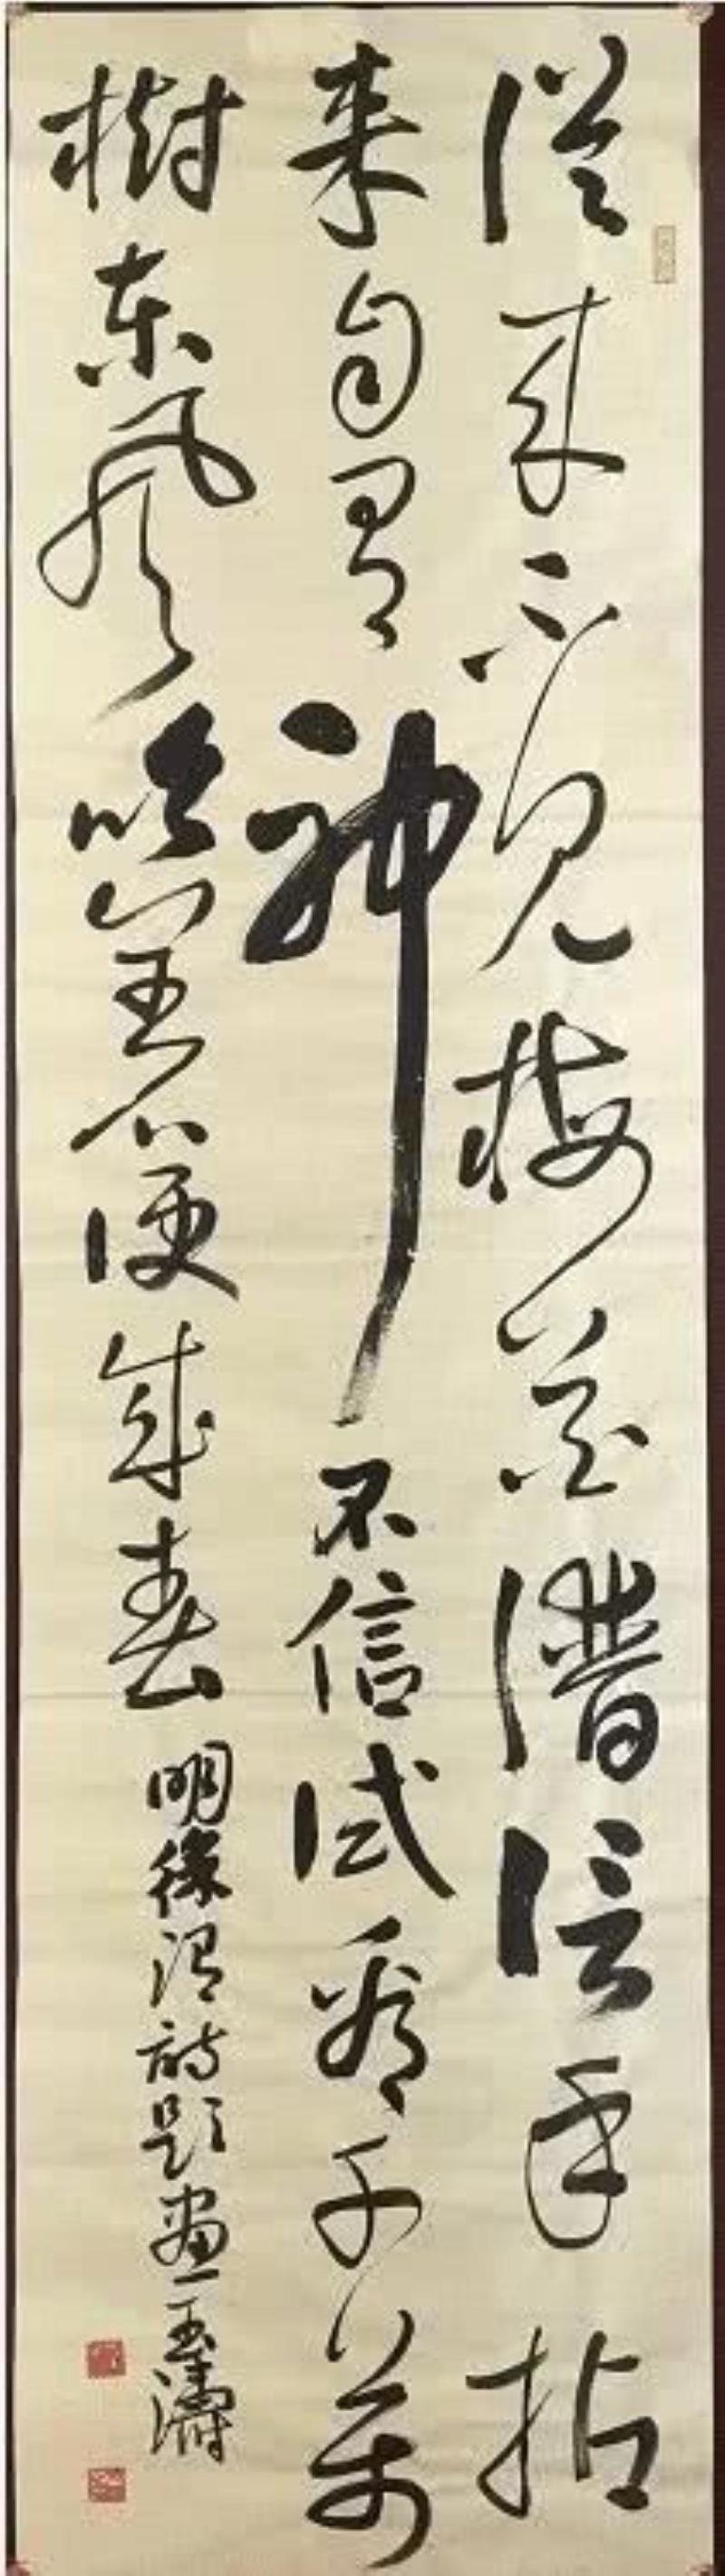 從来不見梅花譜信手拈
来自有神不信試看千萬
樹東風吹著便成春 明徐渭詩題畫 玉濤